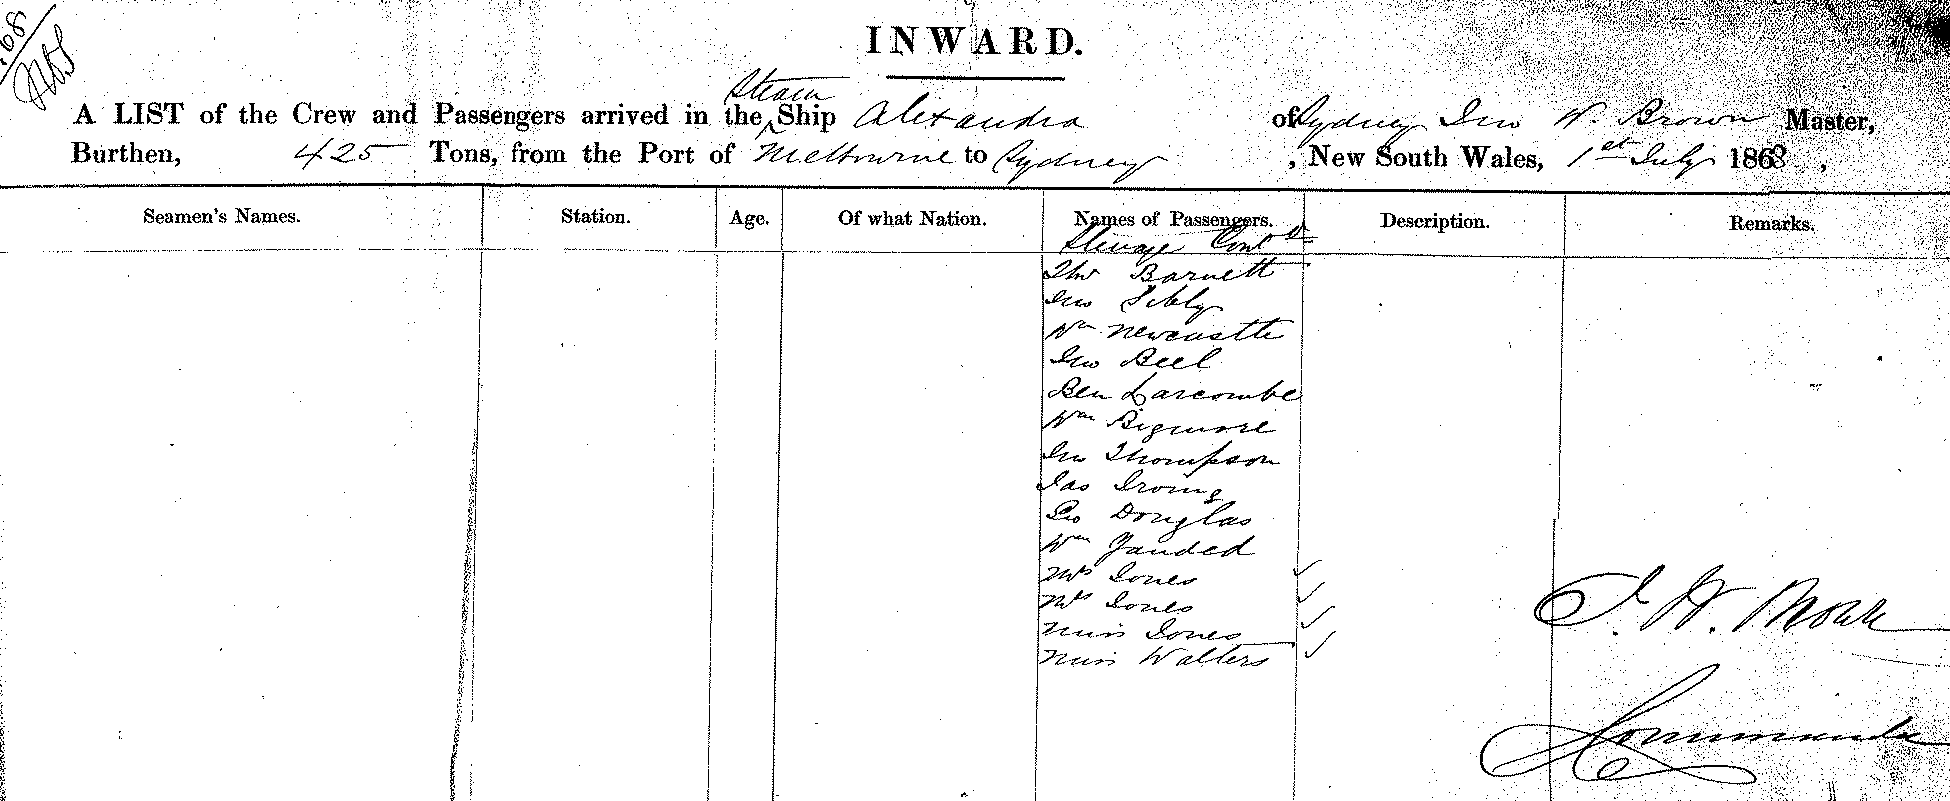 68
INWARD.
Steam
A LIST of the Crew and Passengers arrived in the Ship Alexandra of Sydney Jno W. Brown Master,
Burthen, 425 Tons, from the Port of Melbourne to Sydney, New South Wales, 1st July 1868,
Seamen's Names. Station. Age. Of what Nation. Names of Passengers. Description. Remarks.
Steerage Contd
Thos Barnett
Jno Sibly
Wm Newcastle
Jno Beel
Ben Larcombe
Wm Bigmore
Jno Thompson
Jas Irving
Geo Douglas
Wm
Mrs Jones
Mrs Jones
Miss Jones
Miss Walters
J. W. Brown
Commander